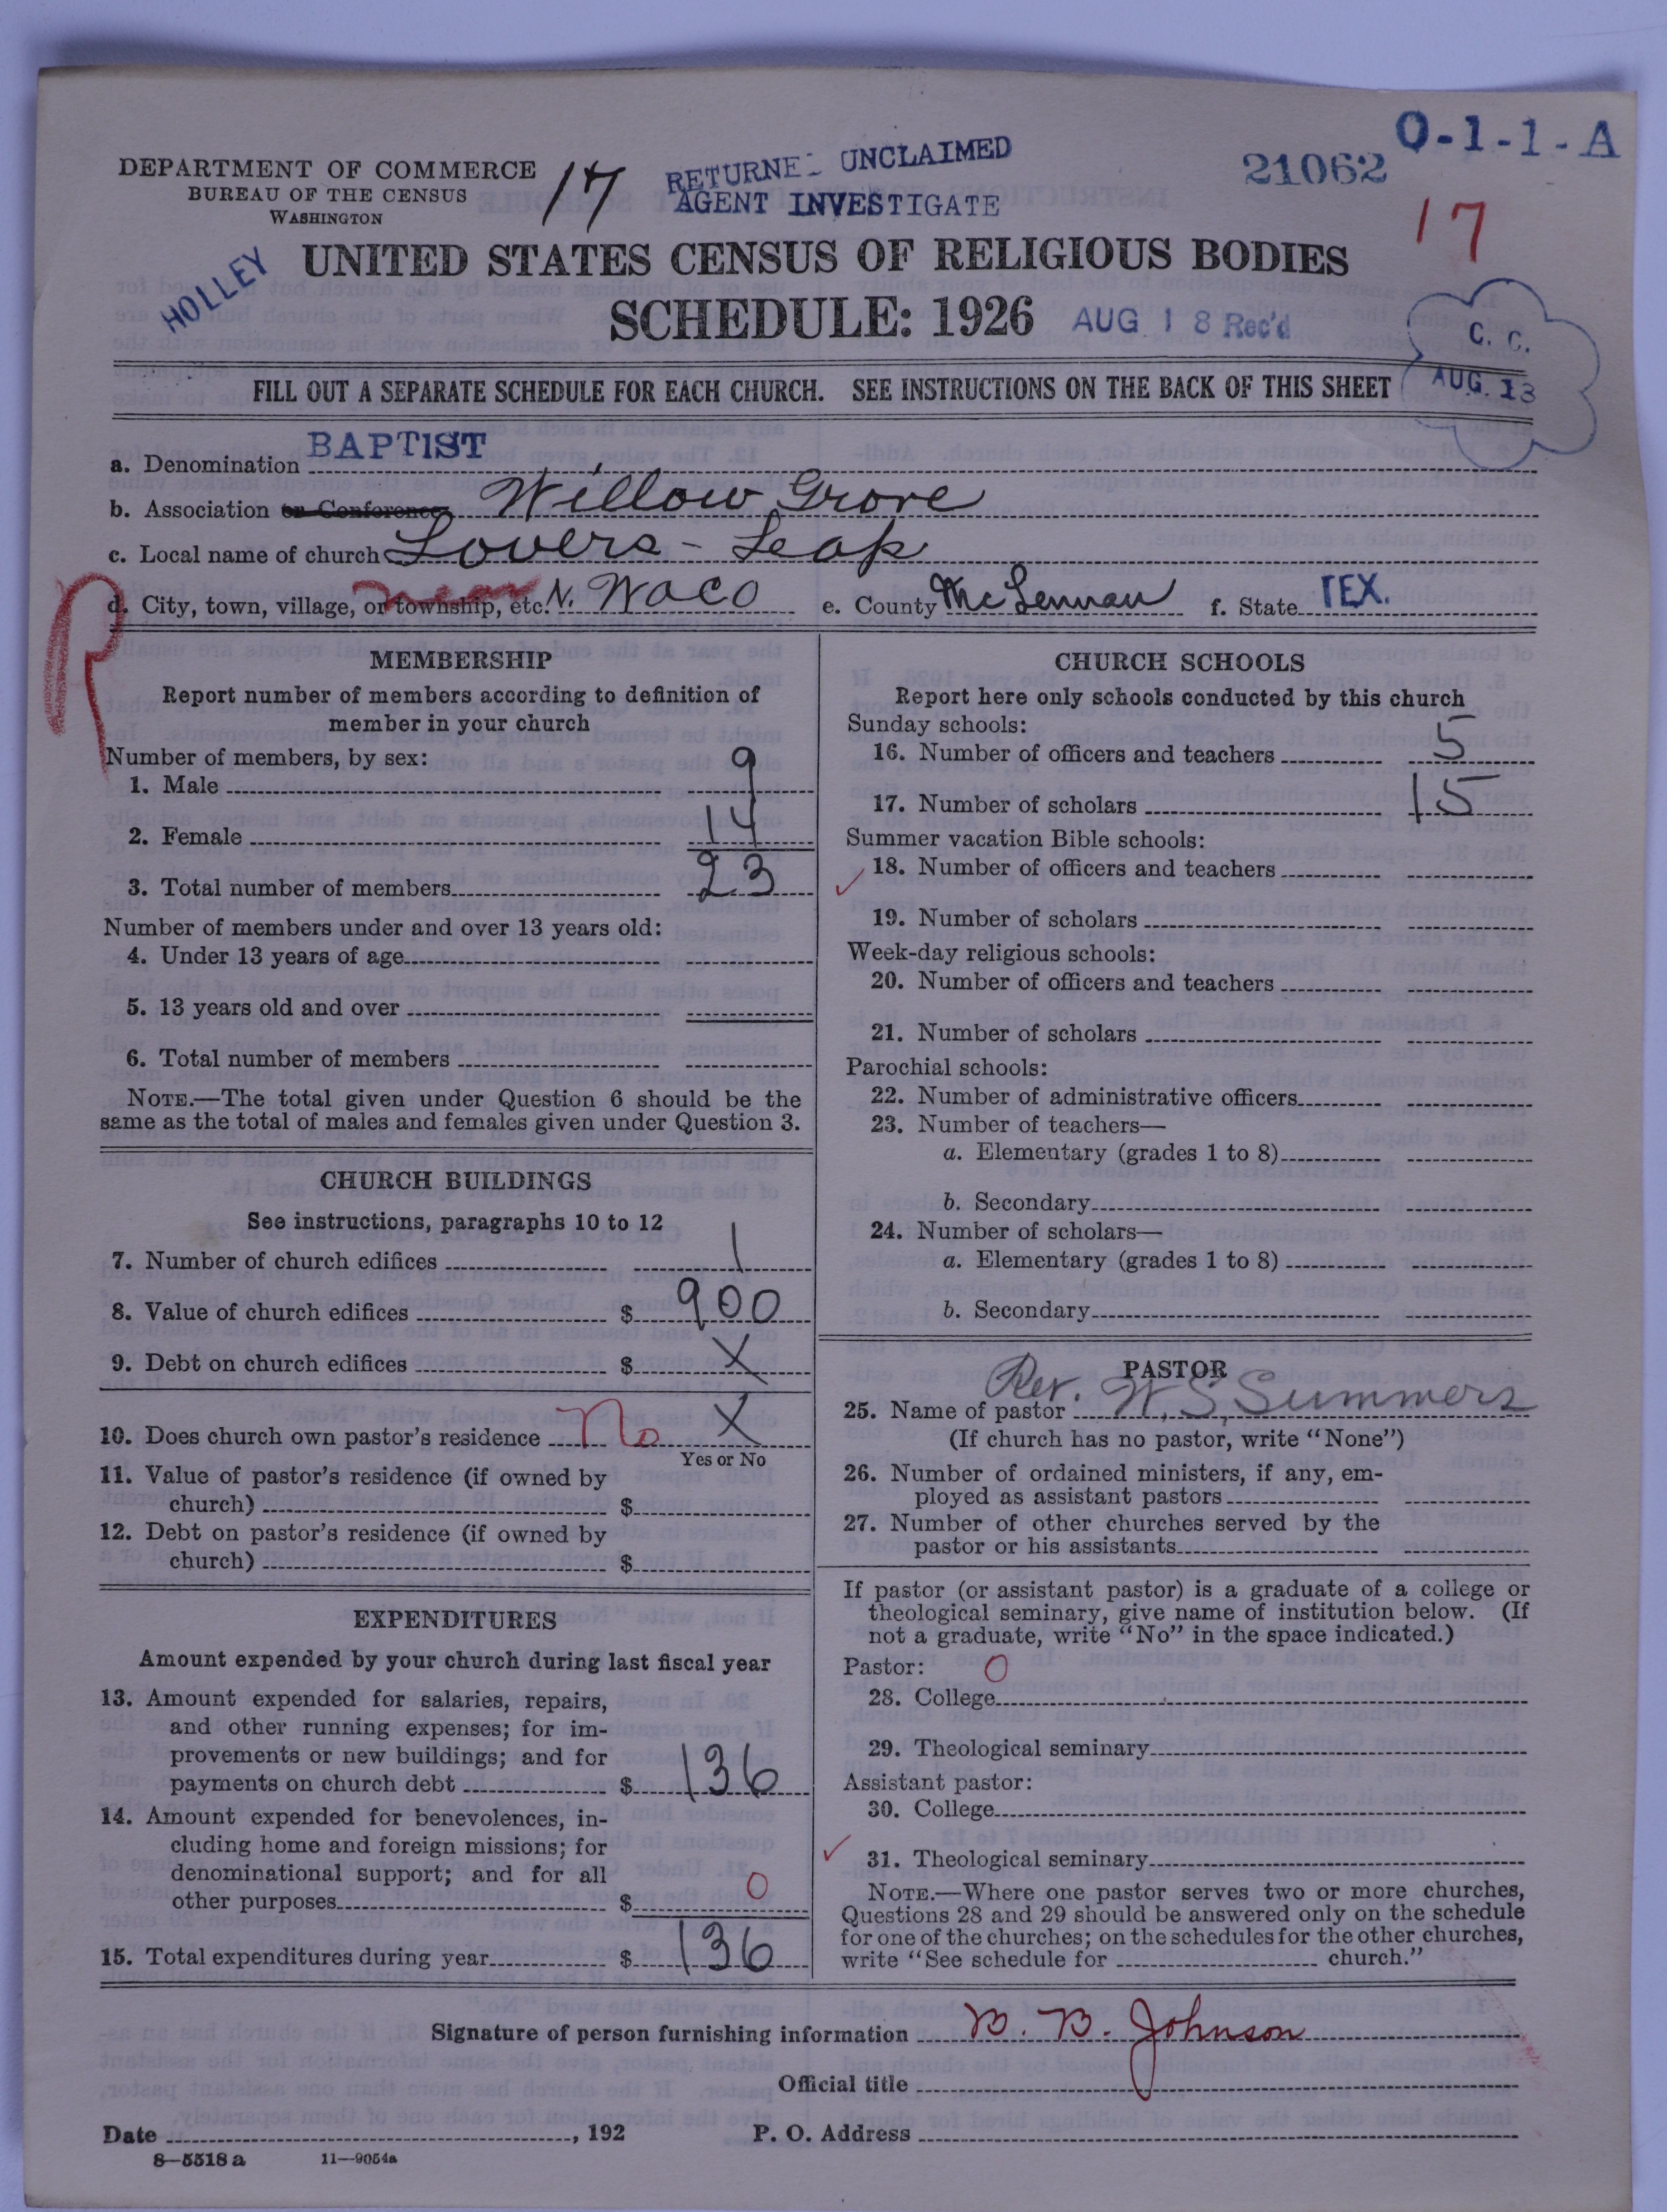 DEPARTMENT OF COMMERCE
BUREAU OF THE CENSUS
WASHINGTON
17
RETURNE UNCLAIMED
AGENT INVESTIGATE
21062
O-1-1-A
17
HOLLEY
UNITED STATES CENSUS OF RELIGIOUS BODIES
SCHEDULE: 1926
AUG 18 Rec'd
C. C.
AUG. 13
FILL OUT A SEPARATE SCHEDULE FOR EACH CHURCH. SEE INSTRUCTIONS ON THE BACK OF THIS SHEET
a. Denomination BAPTIST
b. Association or Conference Willow Grove
c. Local name of church Lovers-Leap
d. City, town, village, or township, etc. near N. Waco e. County McLennan f. State TEX.
R
MEMBERSHIP
Report number of members according to definition of
member in your church
Number of members, by sex:
1. Male 9
2. Female 14
3. Total number of members 23
Number of members under and over 13 years old:
4. Under 13 years of age
5. 13 years old and over
6. Total number of members
NOTE.—The total given under Question 6 should be the
same as the total of males and females given under Question 3.
CHURCH BUILDINGS
See instructions, paragraphs 10 to 12
7. Number of church edifices 1
8. Value of church edifices $ 900
9. Debt on church edifices $ X
10. Does church own pastor's residence No X
Yes or No
11. Value of pastor's residence (if owned by
church) $
12. Debt on pastor's residence (if owned by
church) $
EXPENDITURES
Amount expended by your church during last fiscal year
13. Amount expended for salaries, repairs,
and other running expenses; for im-
provements or new buildings; and for
payments on church debt $ 136
14. Amount expended for benevolences, in-
cluding home and foreign missions; for
denominational support; and for all
other purposes $ 0
15. Total expenditures during year $ 136
CHURCH SCHOOLS
Report here only schools conducted by this church
Sunday schools:
16. Number of officers and teachers 5
17. Number of scholars 15
Summer vacation Bible schools:
18. Number of officers and teachers
19. Number of scholars
Week-day religious schools:
20. Number of officers and teachers
21. Number of scholars
Parochial schools:
22. Number of administrative officers
23. Number of teachers—
a. Elementary (grades 1 to 8)
b. Secondary
24. Number of scholars—
a. Elementary (grades 1 to 8)
b. Secondary
PASTOR
25. Name of pastor Rev. W. S. Summers
(If church has no pastor, write "None")
26. Number of ordained ministers, if any, em-
ployed as assistant pastors
27. Number of other churches served by the
pastor or his assistants
If pastor (or assistant pastor) is a graduate of a college or
theological seminary, give name of institution below. (If
not a graduate, write "No" in the space indicated.)
Pastor: 0
28. College
29. Theological seminary
Assistant pastor:
30. College
31. Theological seminary
NOTE.—Where one pastor serves two or more churches,
Questions 28 and 29 should be answered only on the schedule
for one of the churches; on the schedules for the other churches,
write "See schedule for church."
Signature of person furnishing information B. B. Johnson
Official title
Date , 192 P. O. Address
8—5518 a 11—9054a